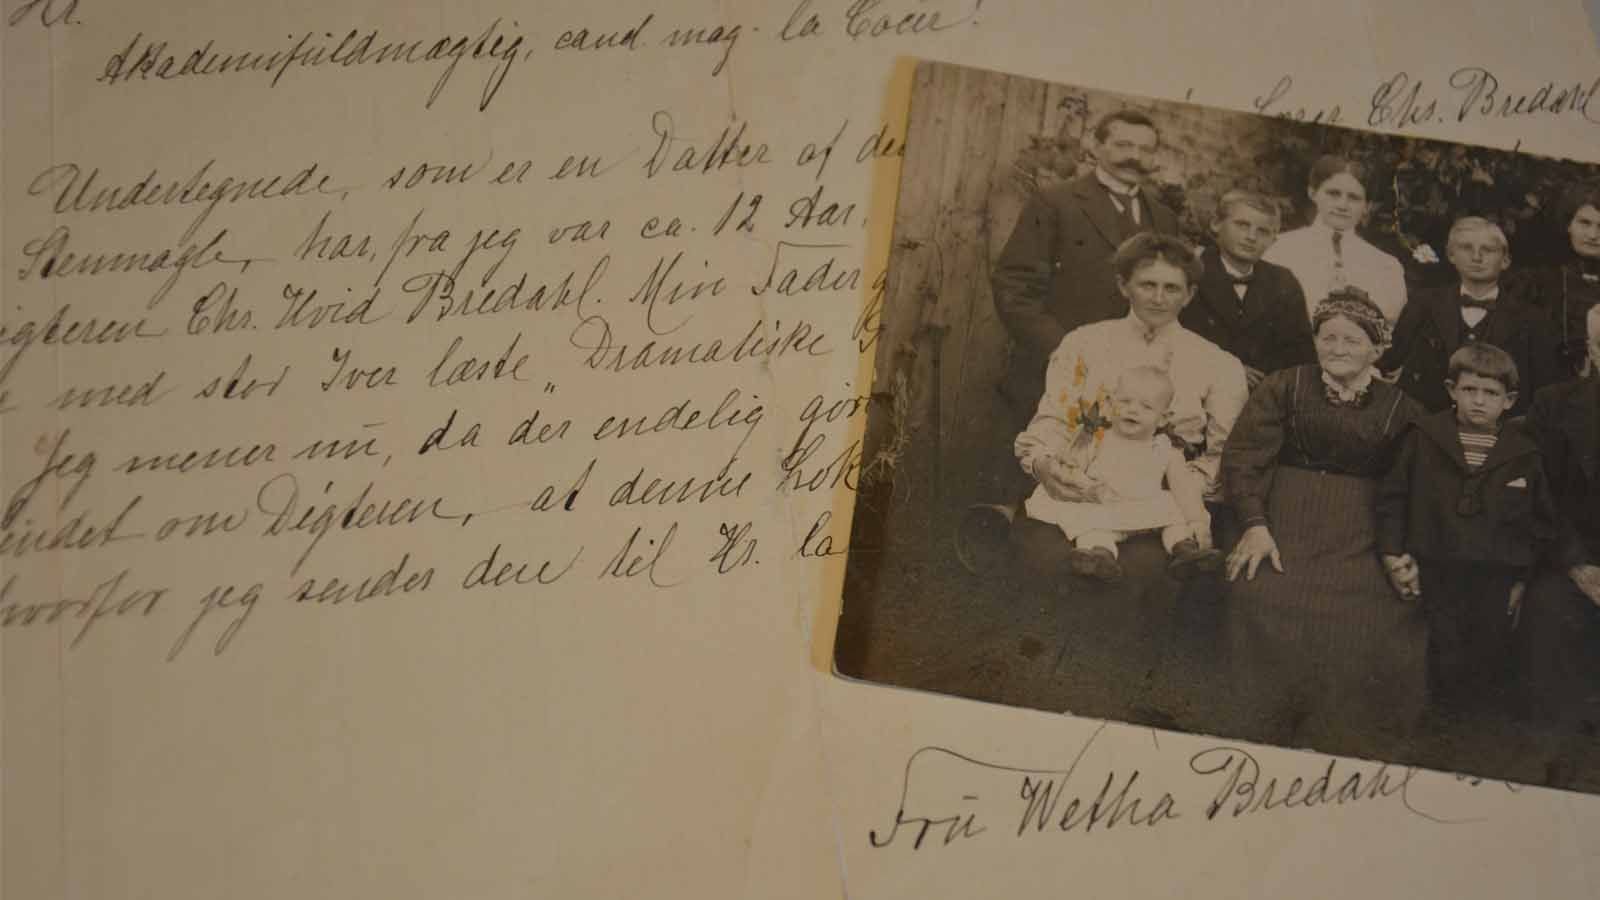 Hr.
Akademifuldmægtig, cand. mag. la Cour!
Chr. Bredahl
Undertegnede, som er en Datter af de
Stenmagle, har, fra jeg var ca. 12 Aar,
igteren Chr. Hvid Bredahl. Min Fader g
med stor Iver læste „Dramatiske
Jeg mener nu, da der endelig gør
indet om Digteren, at denne Lok
hvorfor jeg sender den til Hr. la
Fru Wetha Bredahl